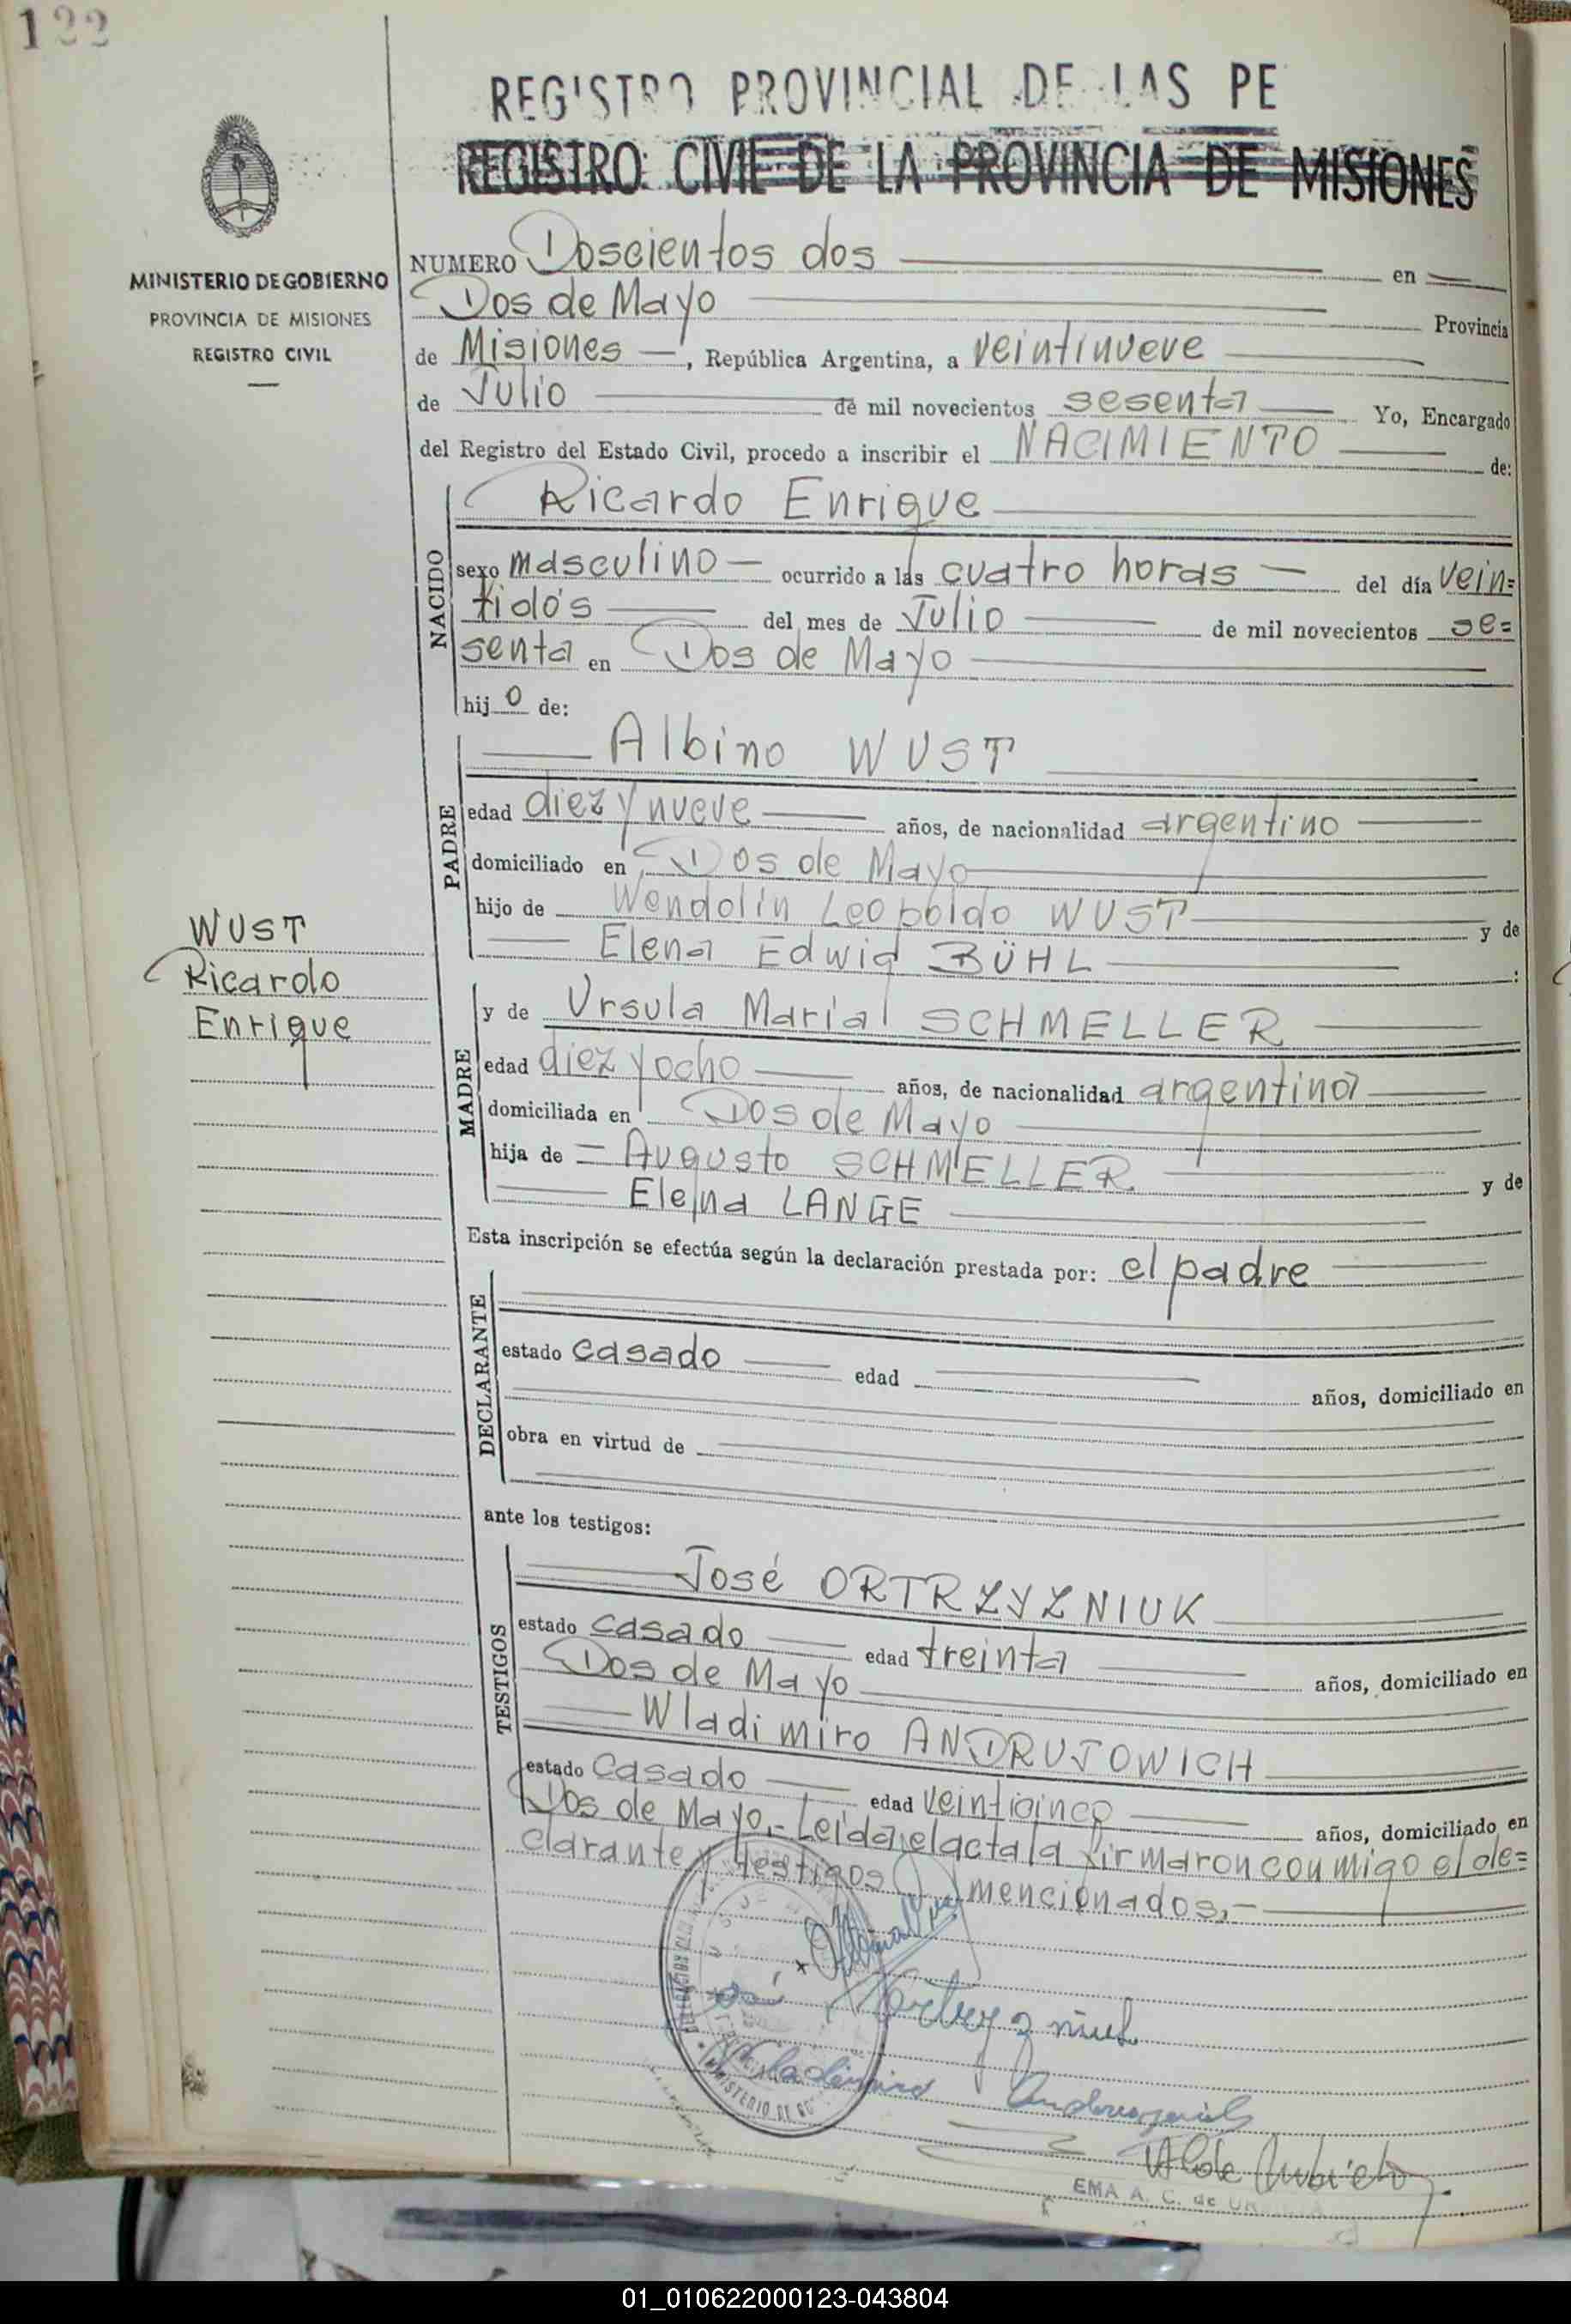 122
REGISTRO PROVINCIAL DE LAS PE
REGISTRO CIVIL DE LA PROVINCIA DE MISIONES
MINISTERIO DE GOBIERNO
PROVINCIA DE MISIONES
REGISTRO CIVIL
NUMERO Doscientos dos en
Dos de Mayo Provincia
de Misiones —, República Argentina, a veintinueve
de Julio de mil novecientos sesenta Yo, Encargado
del Registro del Estado Civil, procedo a inscribir el NACIMIENTO de:
NACIDO
Ricardo Enrique
sexo masculino — ocurrido a las cuatro horas — del día vein=
tidós del mes de Julio de mil novecientos se=
senta en Dos de Mayo
hijo de:
PADRE
Albino WUST
edad diez y nueve años, de nacionalidad argentino
domiciliado en Dos de Mayo
hijo de Wendolin Leopoldo WUST y de
Elena Edwig BÜHL :
WUST
Ricardo
Enrique
MADRE
y de Ursula Maria SCHMELLER
edad diez y ocho años, de nacionalidad argentina
domiciliada en Dos de Mayo
hija de = Augusto SCHMELLER y de
Elena LANGE
Esta inscripción se efectúa según la declaración prestada por: el padre
DECLARANTE
estado casado edad años, domiciliado en
obra en virtud de
ante los testigos:
TESTIGOS
José ORTRZYZNIUK
estado casado edad treinta años, domiciliado en
Dos de Mayo
Wladimiro ANDRUJOWICH
estado casado edad veinticinco años, domiciliado en
Dos de Mayo.- Leida el acta la firmaron conmigo el de=
clarante y testigos mencionados.-
MINISTERIO DE
Wladimiro
EMA A. C. de
01_010622000123-043804